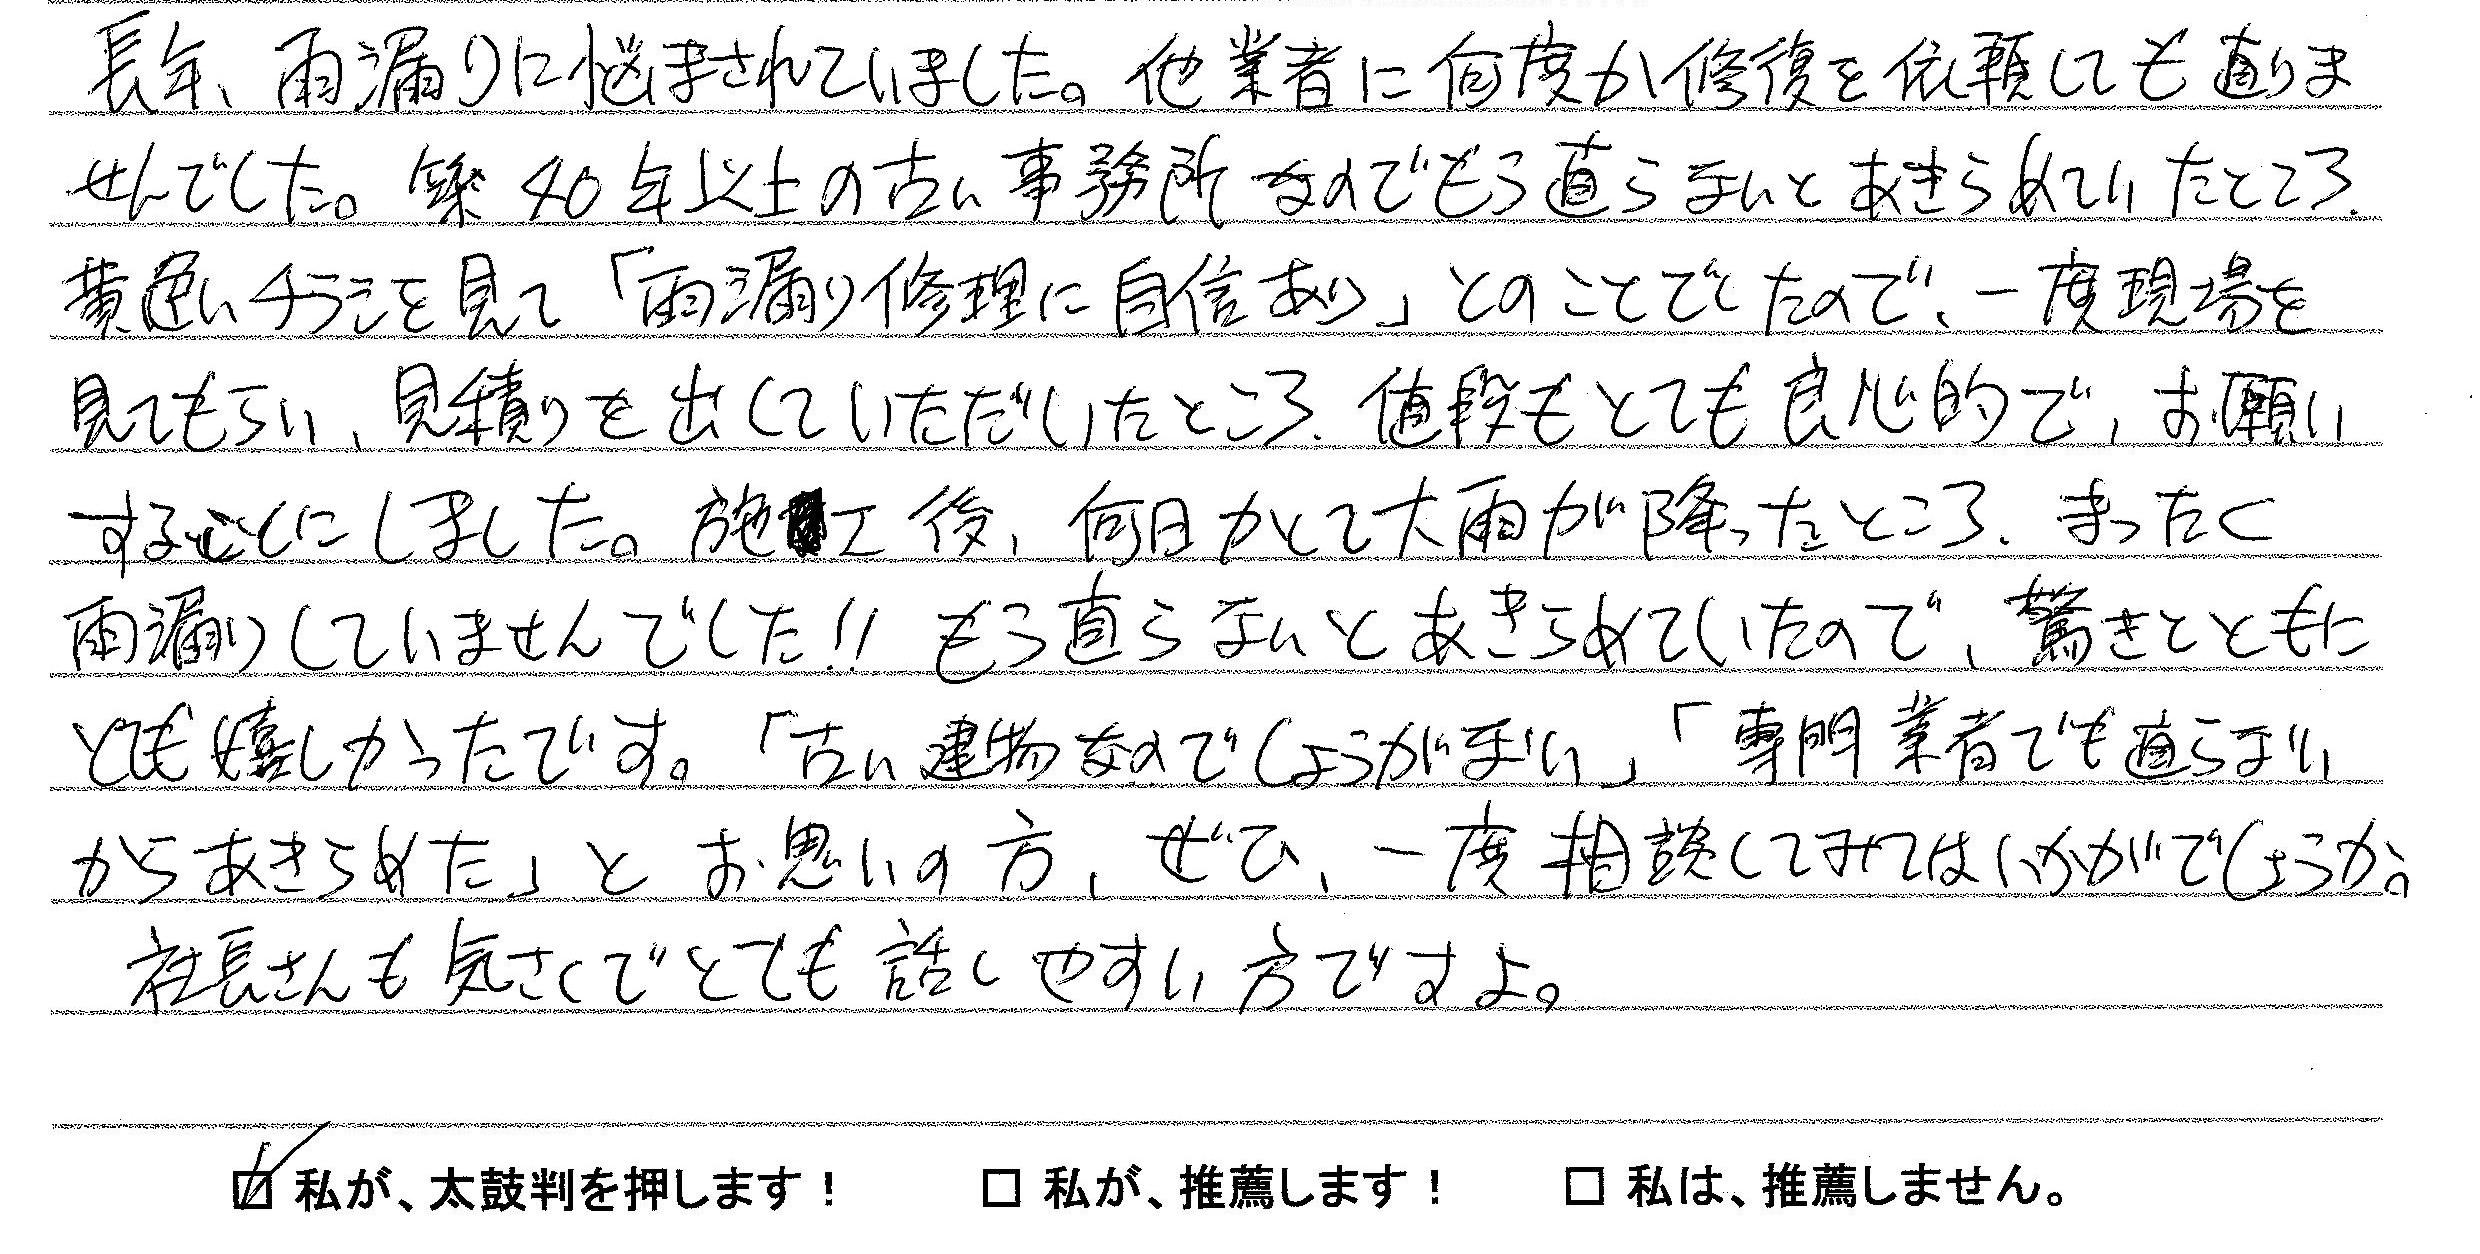 長年、雨漏りに悩まされていました。他業者に何度か修復を依頼しても直りま
せんでした。築40年以上の古い事務所なのでもう直らないとあきらめていたところ、
黄色いチラシを見て「雨漏り修理に自信あり」とのことでしたので、一度現場を
見てもらい、見積りを出していただいたところ、値段もとても良心的で、お願い
することにしました。施工後、何日かして大雨が降ったところ、まったく
雨漏りしていませんでした!! もう直らないとあきらめていたので、驚きとともに
とても嬉しかったです。「古い建物なのでしょうがない」「専門業者でも直らない
からあきらめた」とお思いの方、ぜひ、一度相談してみてはいかがでしょうか。
社長さんも気さくでとても話しやすい方ですよ。
☑ 私が、太鼓判を押します！ □ 私が、推薦します！ □ 私は、推薦しません。